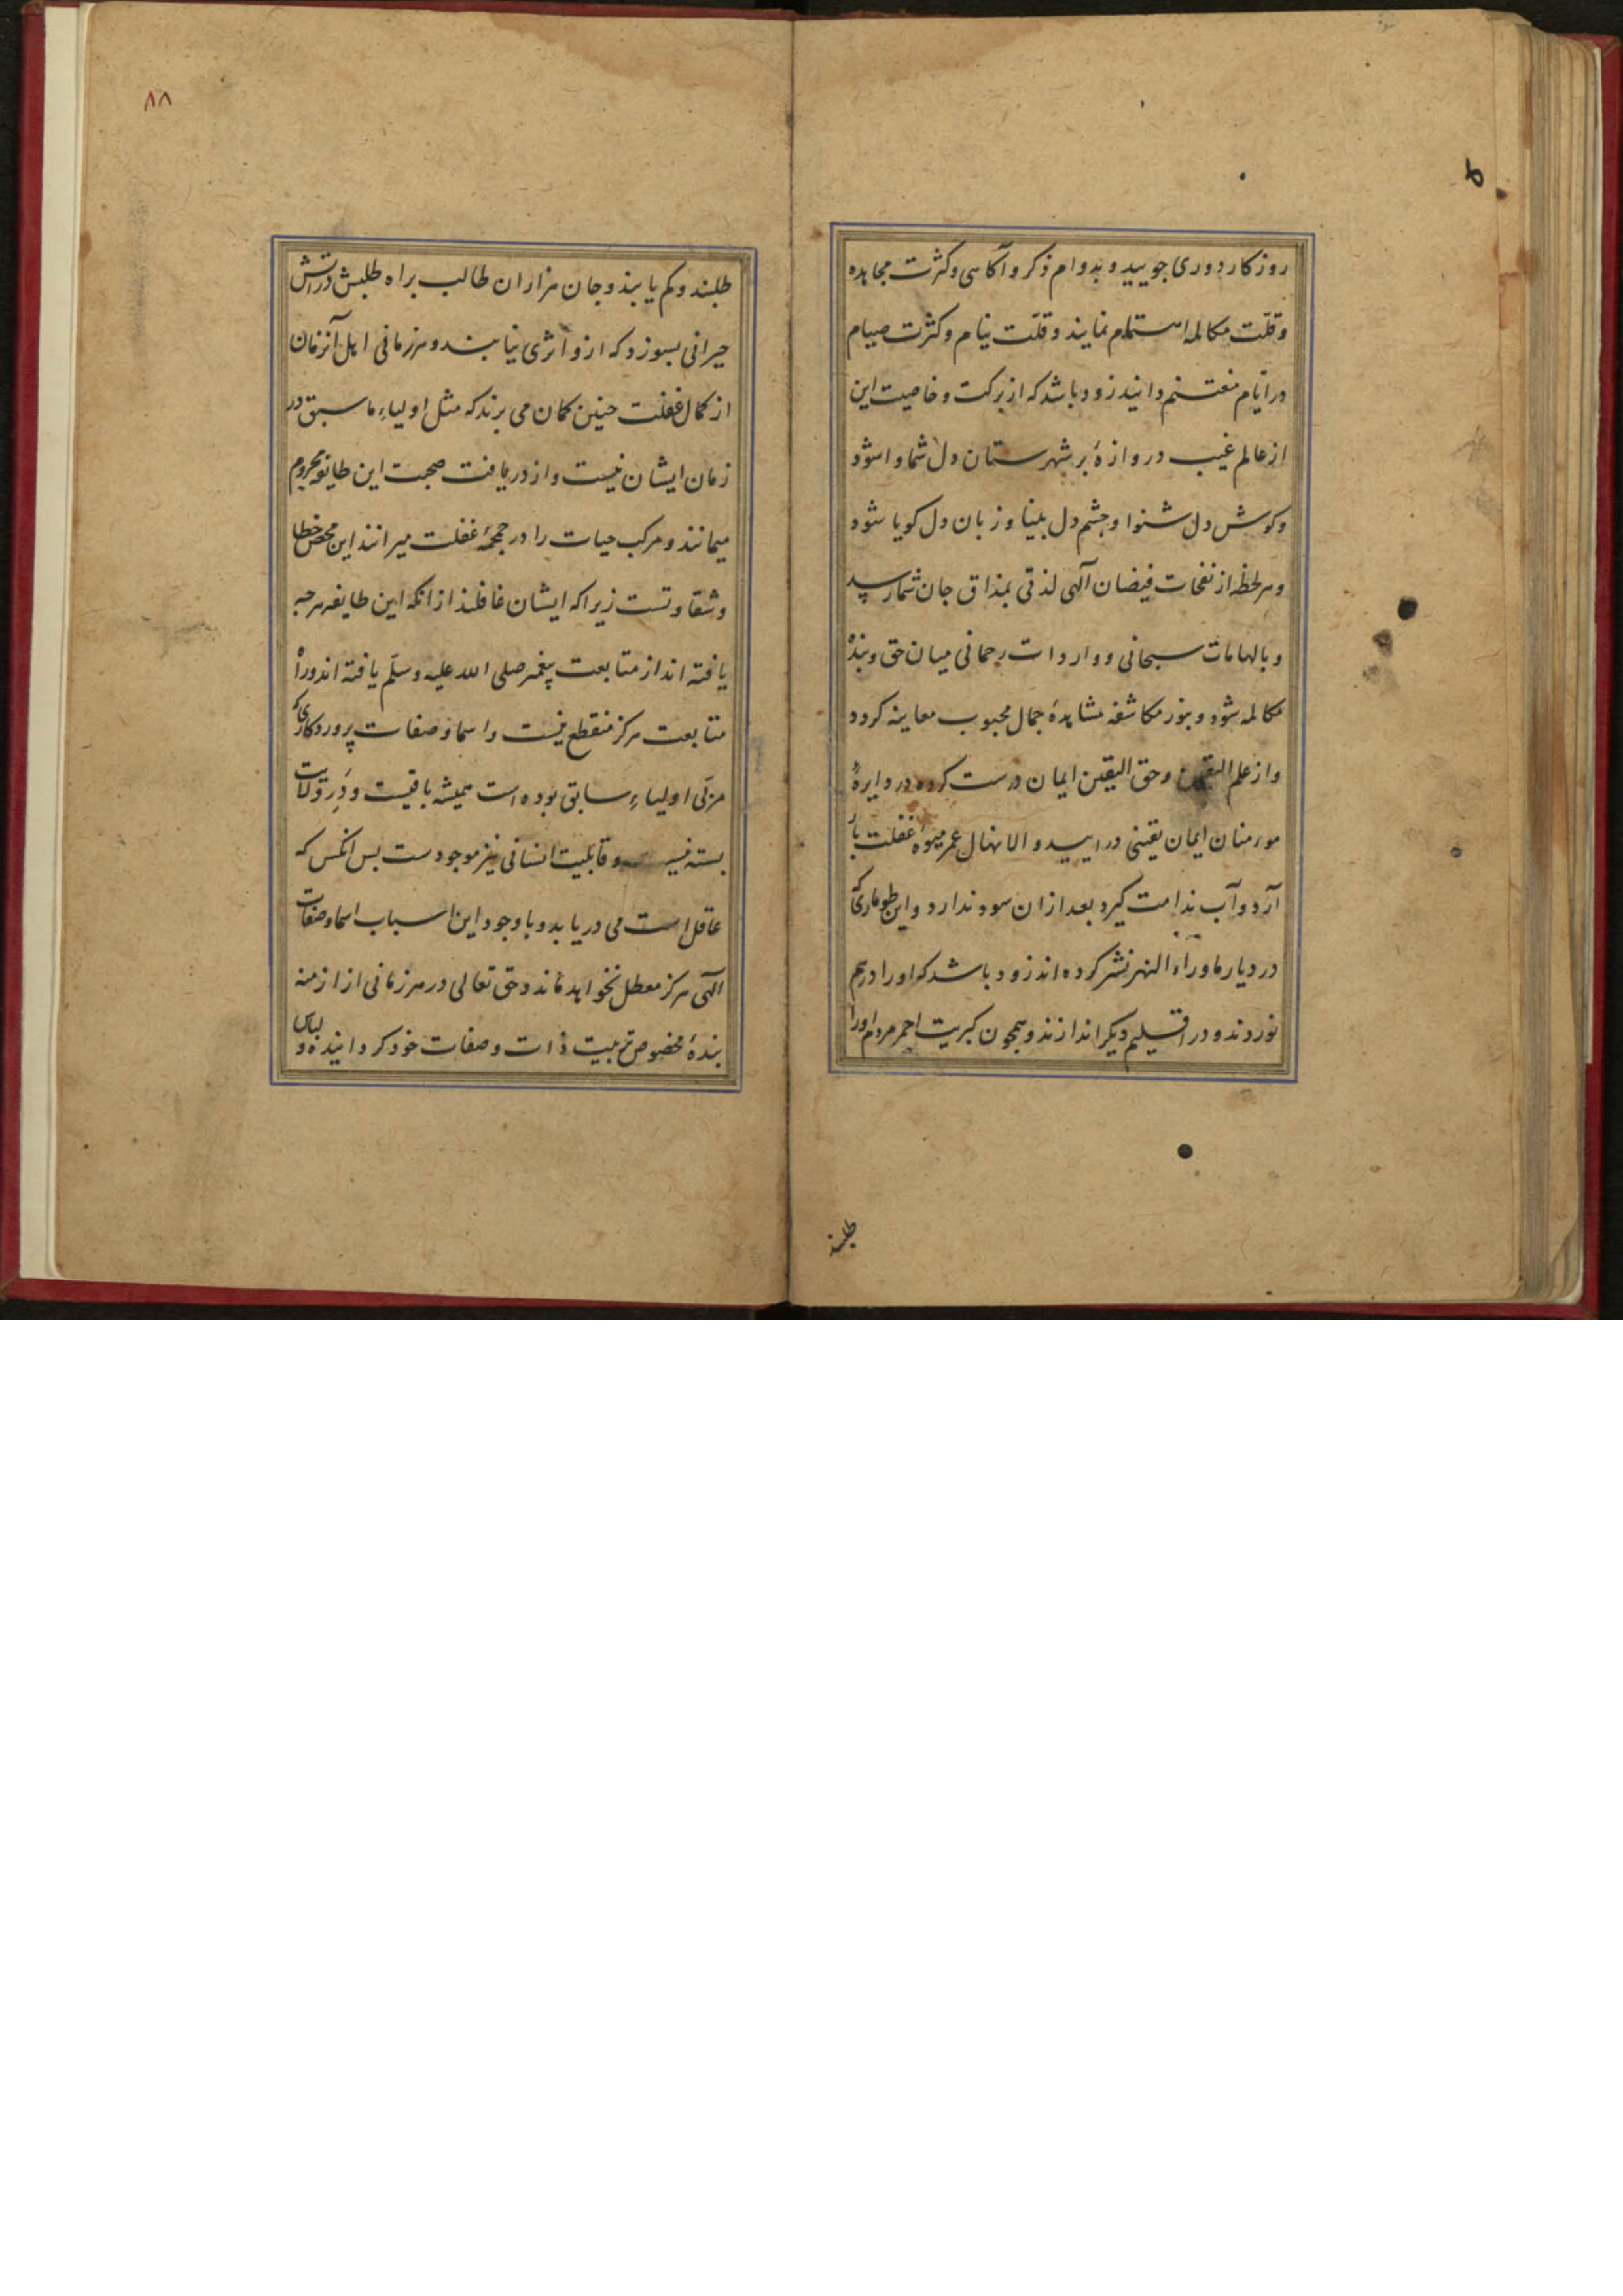 روزکار دوری جویید و بدوام ذکر و آکاسی و کثرت مجاهده
و قلّت مکالمه استمام نمایند و قلّت نیام و کثرت صیام
در ایام مغتنم دانید زود باشد که از برکت و خاصیت این
از عالم غیب دروازهٔ بر شهرستان دل شما وا شود
و کوش دل شنوا و جشم دل بینا و زبان دل کویا شود
و هر لحظه از نفحات فیضان آلهی لذتی بمذاق جان شما رسد
و بالهامات سبحانی و واردات رحمانی میان حق و بنده
مکالمه شود و بنور مکاشفه مشاهدهٔ جمال محبوب معاینه کردد
و از علم الیقین و حق الیقین ایمان درست کرده در دایرهٔ
مورمنان ایمان یقینی در ایید و الا نهال عمر میوهٔ غفلت بار
آرد و آب ندامت کیرد بعد ازان سود ندارد و این طوماری که
در دیار ماوراء النهر نشر کرده اند زود باشد که او را در هم
نوردند و در اقلیم دیکر اندازند و همجون کبریت احمر مردم او را
طلبند
۸۸
طلبند و کم یابند و جان هزاران طالب براه طلبش در آتش
حیرانی بسوزد که ازو اثری نیابند و هر زمانی اهل آنزمان
از کمال غفلت جنین کمان می برند که مثل اولیاءِ ماسبق در
زمان ایشان نیست و از دریافت صحبت این طایفه محروم
میمانند و مرکب حیات را در غفلت میرانند این محض خطا
و شقاوتست زیرا که ایشان غافلند از انکه این طایفه هرجه
یافته اند از متابعت پیغمبر صلی الله علیه وسلّم یافته اند و راه
متابعت هرکز منقطع نیست و اسما و صفات پروردکاری که
مربّی اولیاءِ سابق بوده است همیشه باقیست و دَرِ ولایت
بسته نیست و قابلیت انسانی نیز موجودست بس انکس که
عاقل است می دریابد و با وجود این اسباب اسما و صفات
آلهی هرکز معطل نخواهد ماند و حق تعالی در هر زمانی از ازمنه
بندهٔ مخصوص تربیت ذات و صفات خود کردانیده و لباس